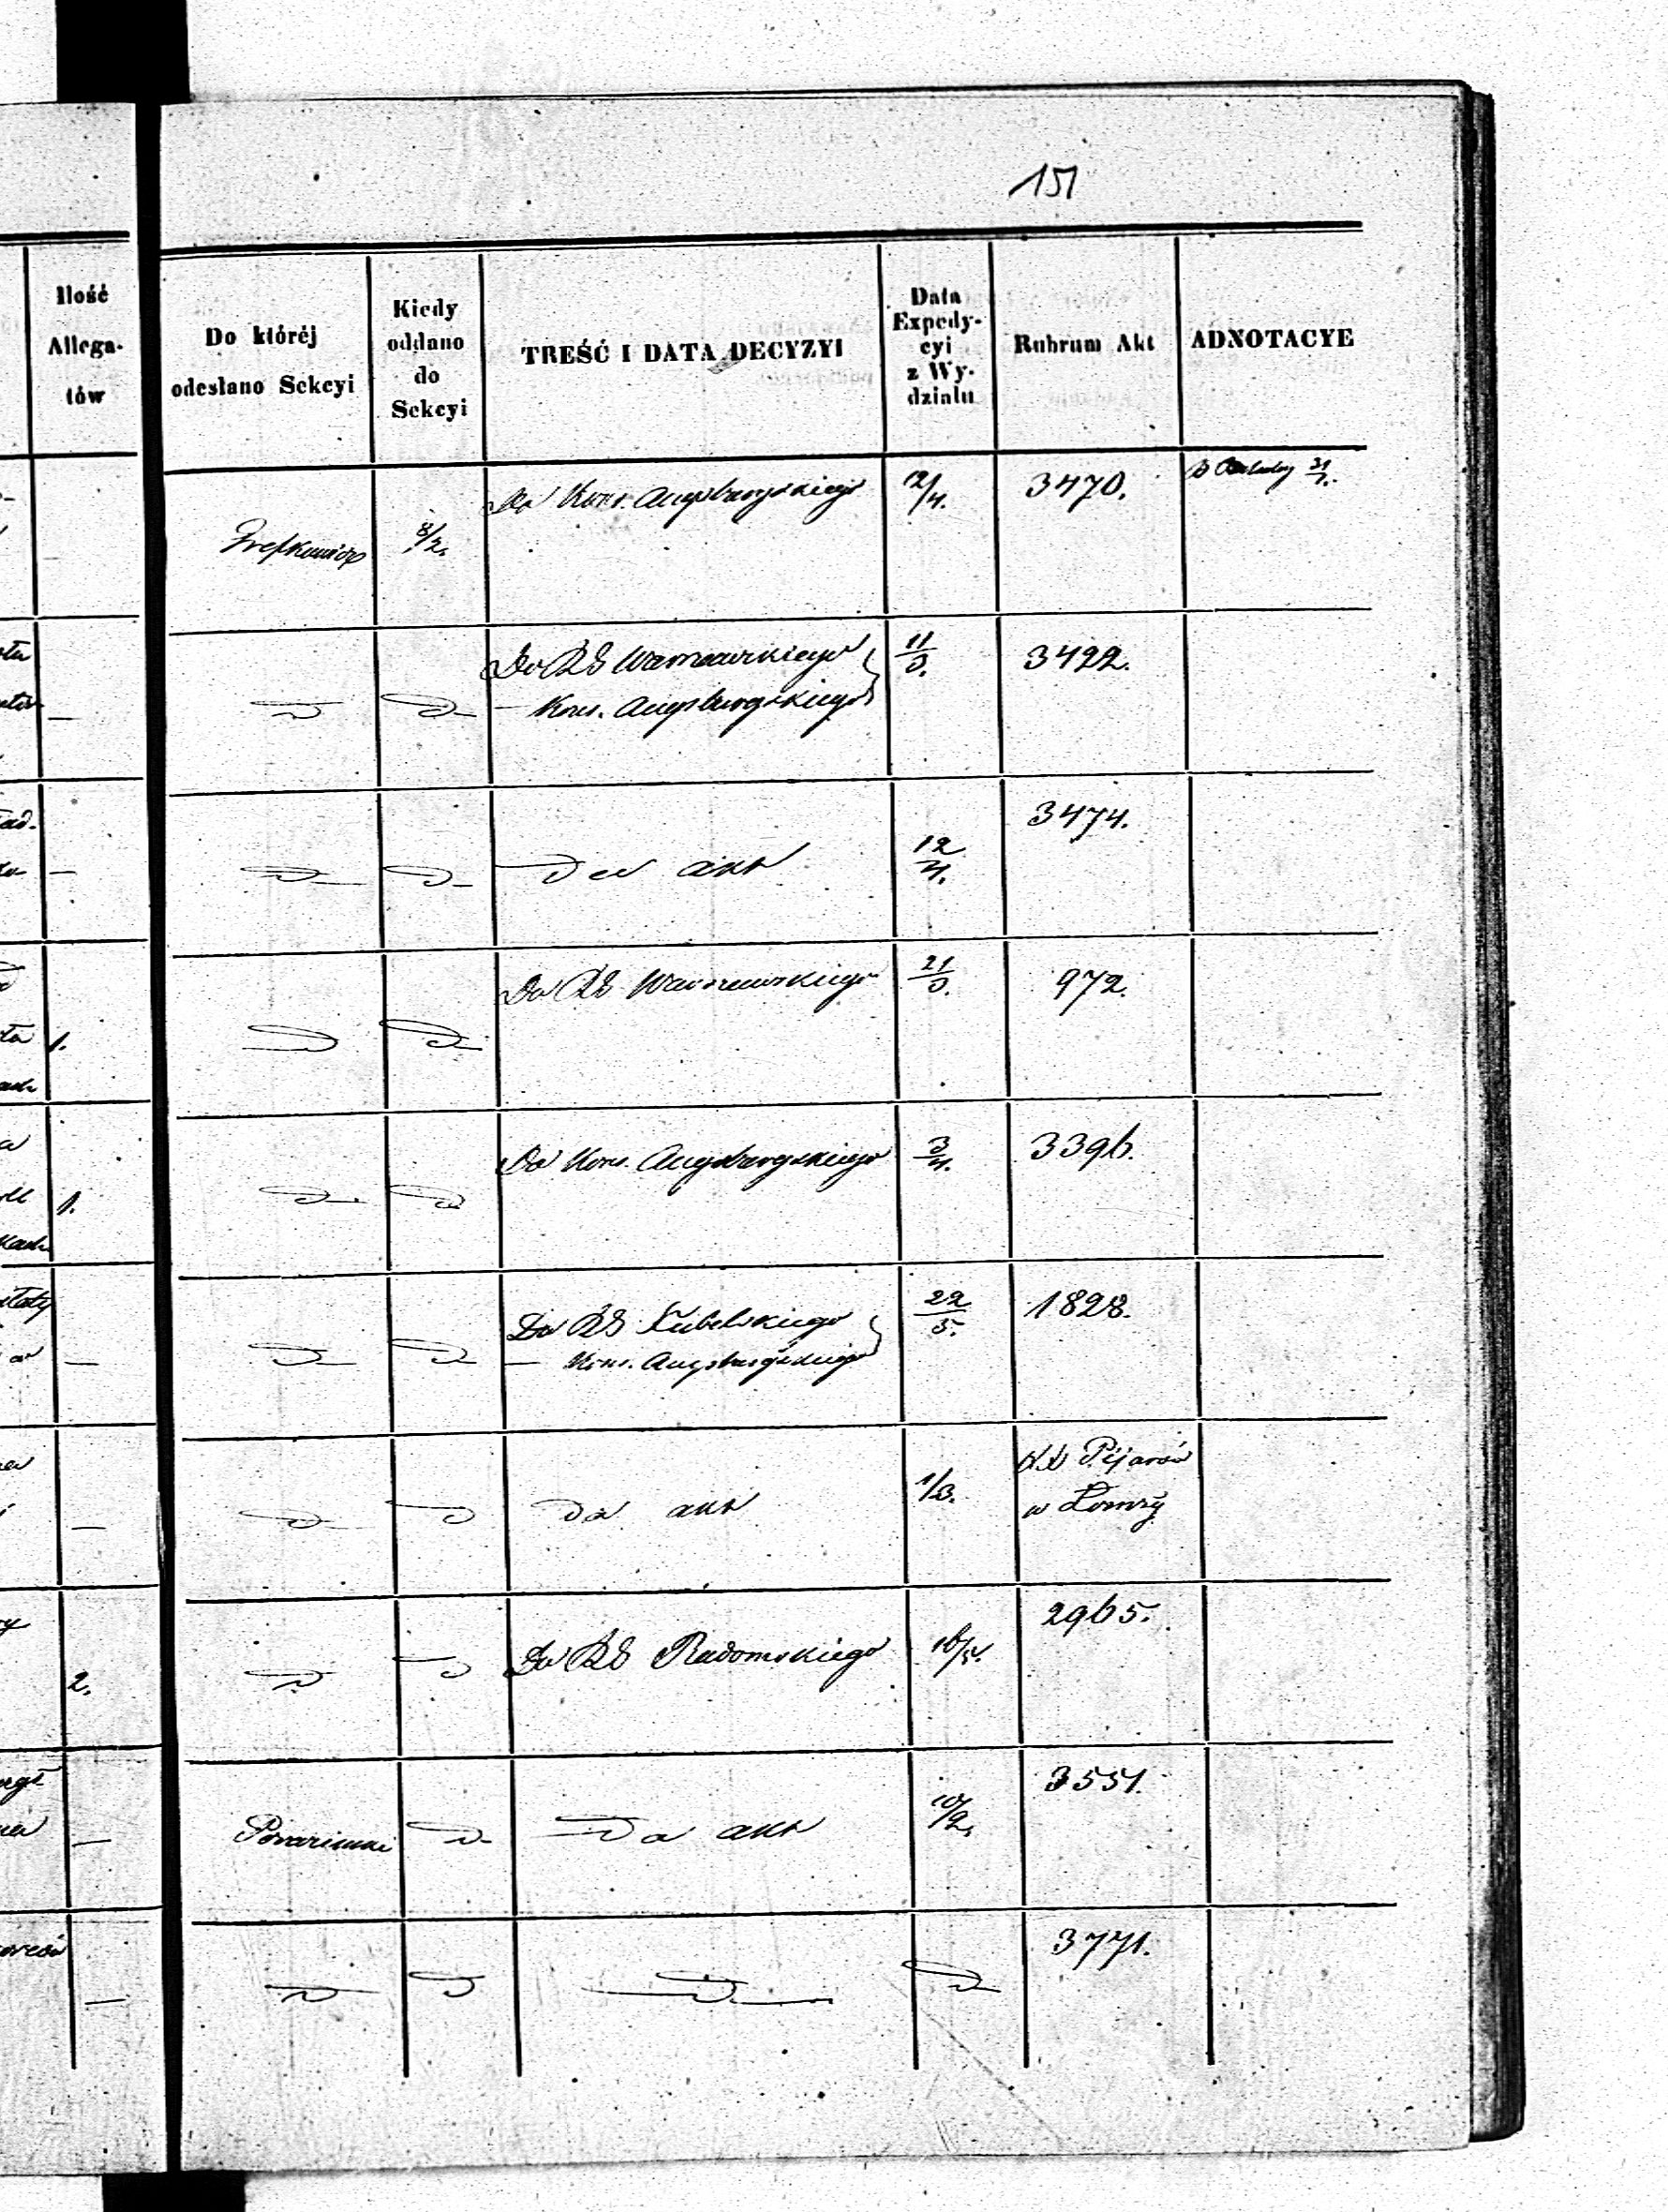 151
Ilość
Allega-
tów
Do któréj
odesłano Sekcyi
Kiedy
oddano
do
Sekcyi
TREŚĆ I DATA DECYZYI
Data
Expedy-
cyi
z Wy-
działu
Rubrum Akt
ADNOTACYE
8/2. Do Kons. Augsburgskiego 12/4. 3470. 31/7.
Do RG Warszawskiego 11/3. 3422.
— Kons. Augsburgskiego
— D D Do akt 12/4. 3474.
Do RG Warszawskiego 21/3. 972.
1. D D
Do Kons. Augsburgskiego 3/4. 3396.
1. D D
Do RG Lubelskiego 22/5. 1828.
— D D — Kons. Augsburgskiego
XX Pijarów
— D D Do akt 1/3. w Łomży
2965.
2. D D Do RG Radomskiego 16/5.
3551.
— D Do akt 10/2.
3771.
— D D D D